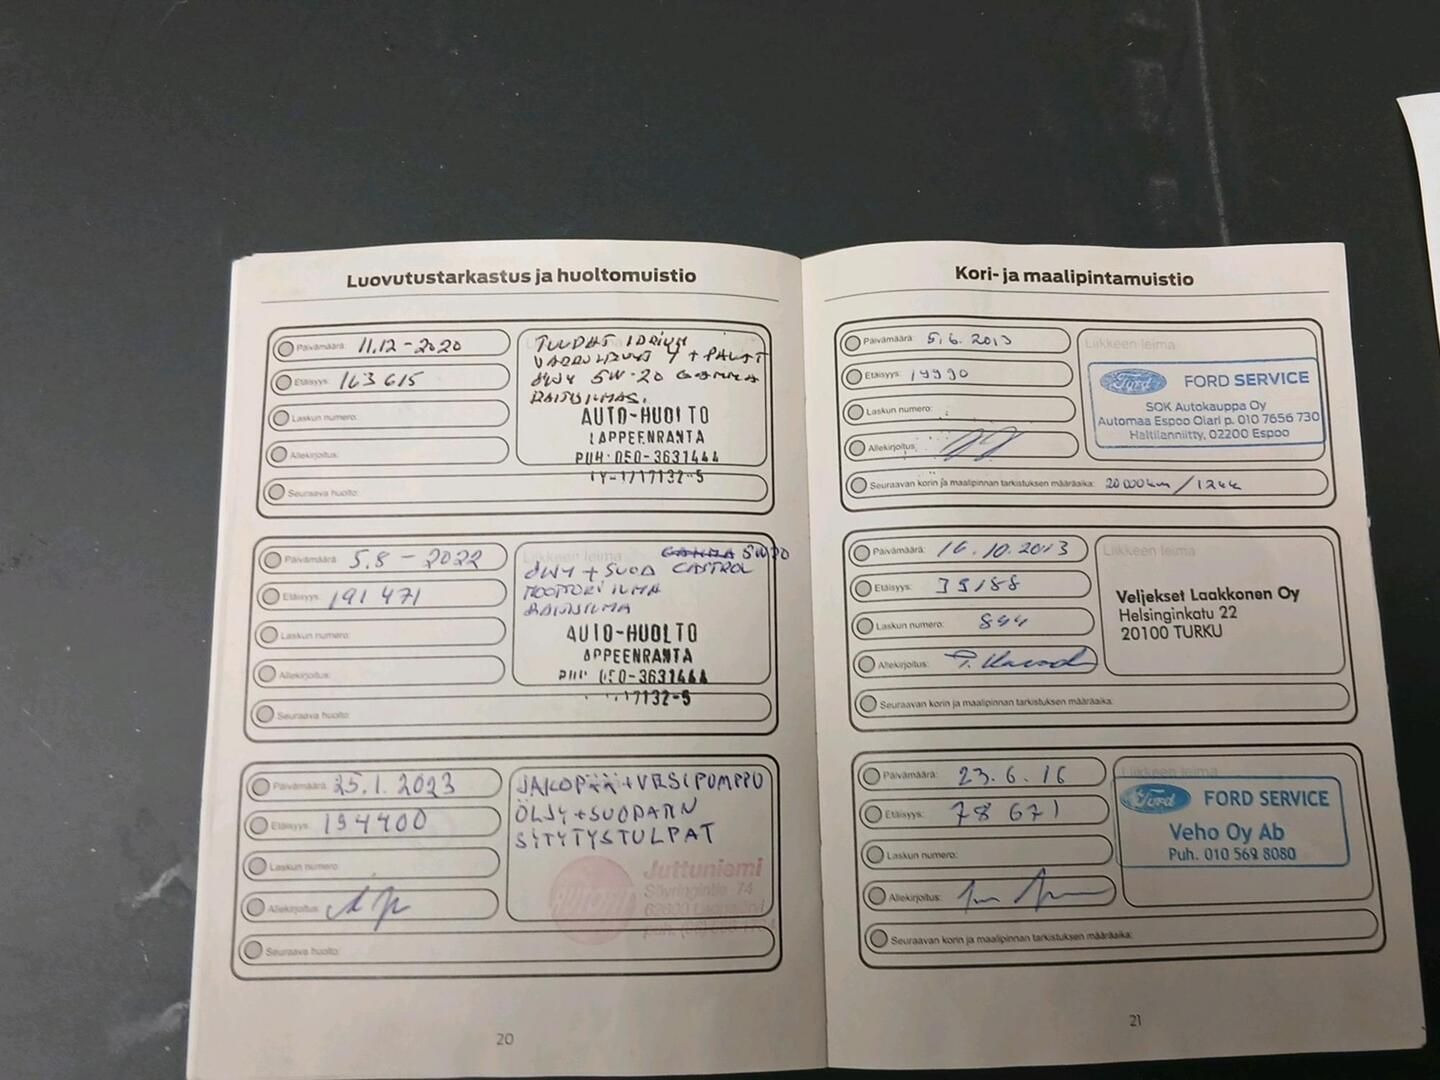 Luovutustarkastus ja huoltomuistio
Päivämäärä: 11.12-2020
Etäisyys: 163 615
Laskun numero:
Allekirjoitus:
Seuraava huolto:
5W-20
AUTO-HUOLTO
LAPPEENRANTA
PUH: 050-3631444
17132-5
Päivämäärä: 5.8 - 2022
Etäisyys: 191 471
Laskun numero:
Allekirjoitus:
Seuraava huolto:
Liikkeen leima
CASTROL
MOOTTORI ILMA
RAITISILMA
AUTO-HUOLTO
APPEENRANTA
050-3631444
17132-5
Päivämäärä: 25.1.2023
Etäisyys: 194400
Laskun numero:
Allekirjoitus:
Seuraava huolto:
JAKOPÄÄ + VESIPUMPPU
ÖLJY + SUODATIN
SYTYTYSTULPAT
Juttuniemi
20
Kori- ja maalipintamuistio
Päivämäärä: 5.6.2013
Etäisyys: 19990
Laskun numero:
Allekirjoitus:
Seuraavan korin ja maalipinnan tarkistuksen määräaika: 20 000 km / 12kk
Liikkeen leima
Ford FORD SERVICE
SOK Autokauppa Oy
Automaa Espoo Olari p. 010 7656 730
Haltilanniitty, 02200 Espoo
Päivämäärä: 16.10.2013
Etäisyys: 39188
Laskun numero: 844
Allekirjoitus:
Seuraavan korin ja maalipinnan tarkistuksen määräaika:
Liikkeen leima
Veljekset Laakkonen Oy
Helsinginkatu 22
20100 TURKU
Päivämäärä: 23.6.16
Etäisyys: 78 671
Laskun numero:
Allekirjoitus:
Seuraavan korin ja maalipinnan tarkistuksen määräaika:
Liikkeen leima
Ford FORD SERVICE
Veho Oy Ab
Puh. 010 569 8080
21